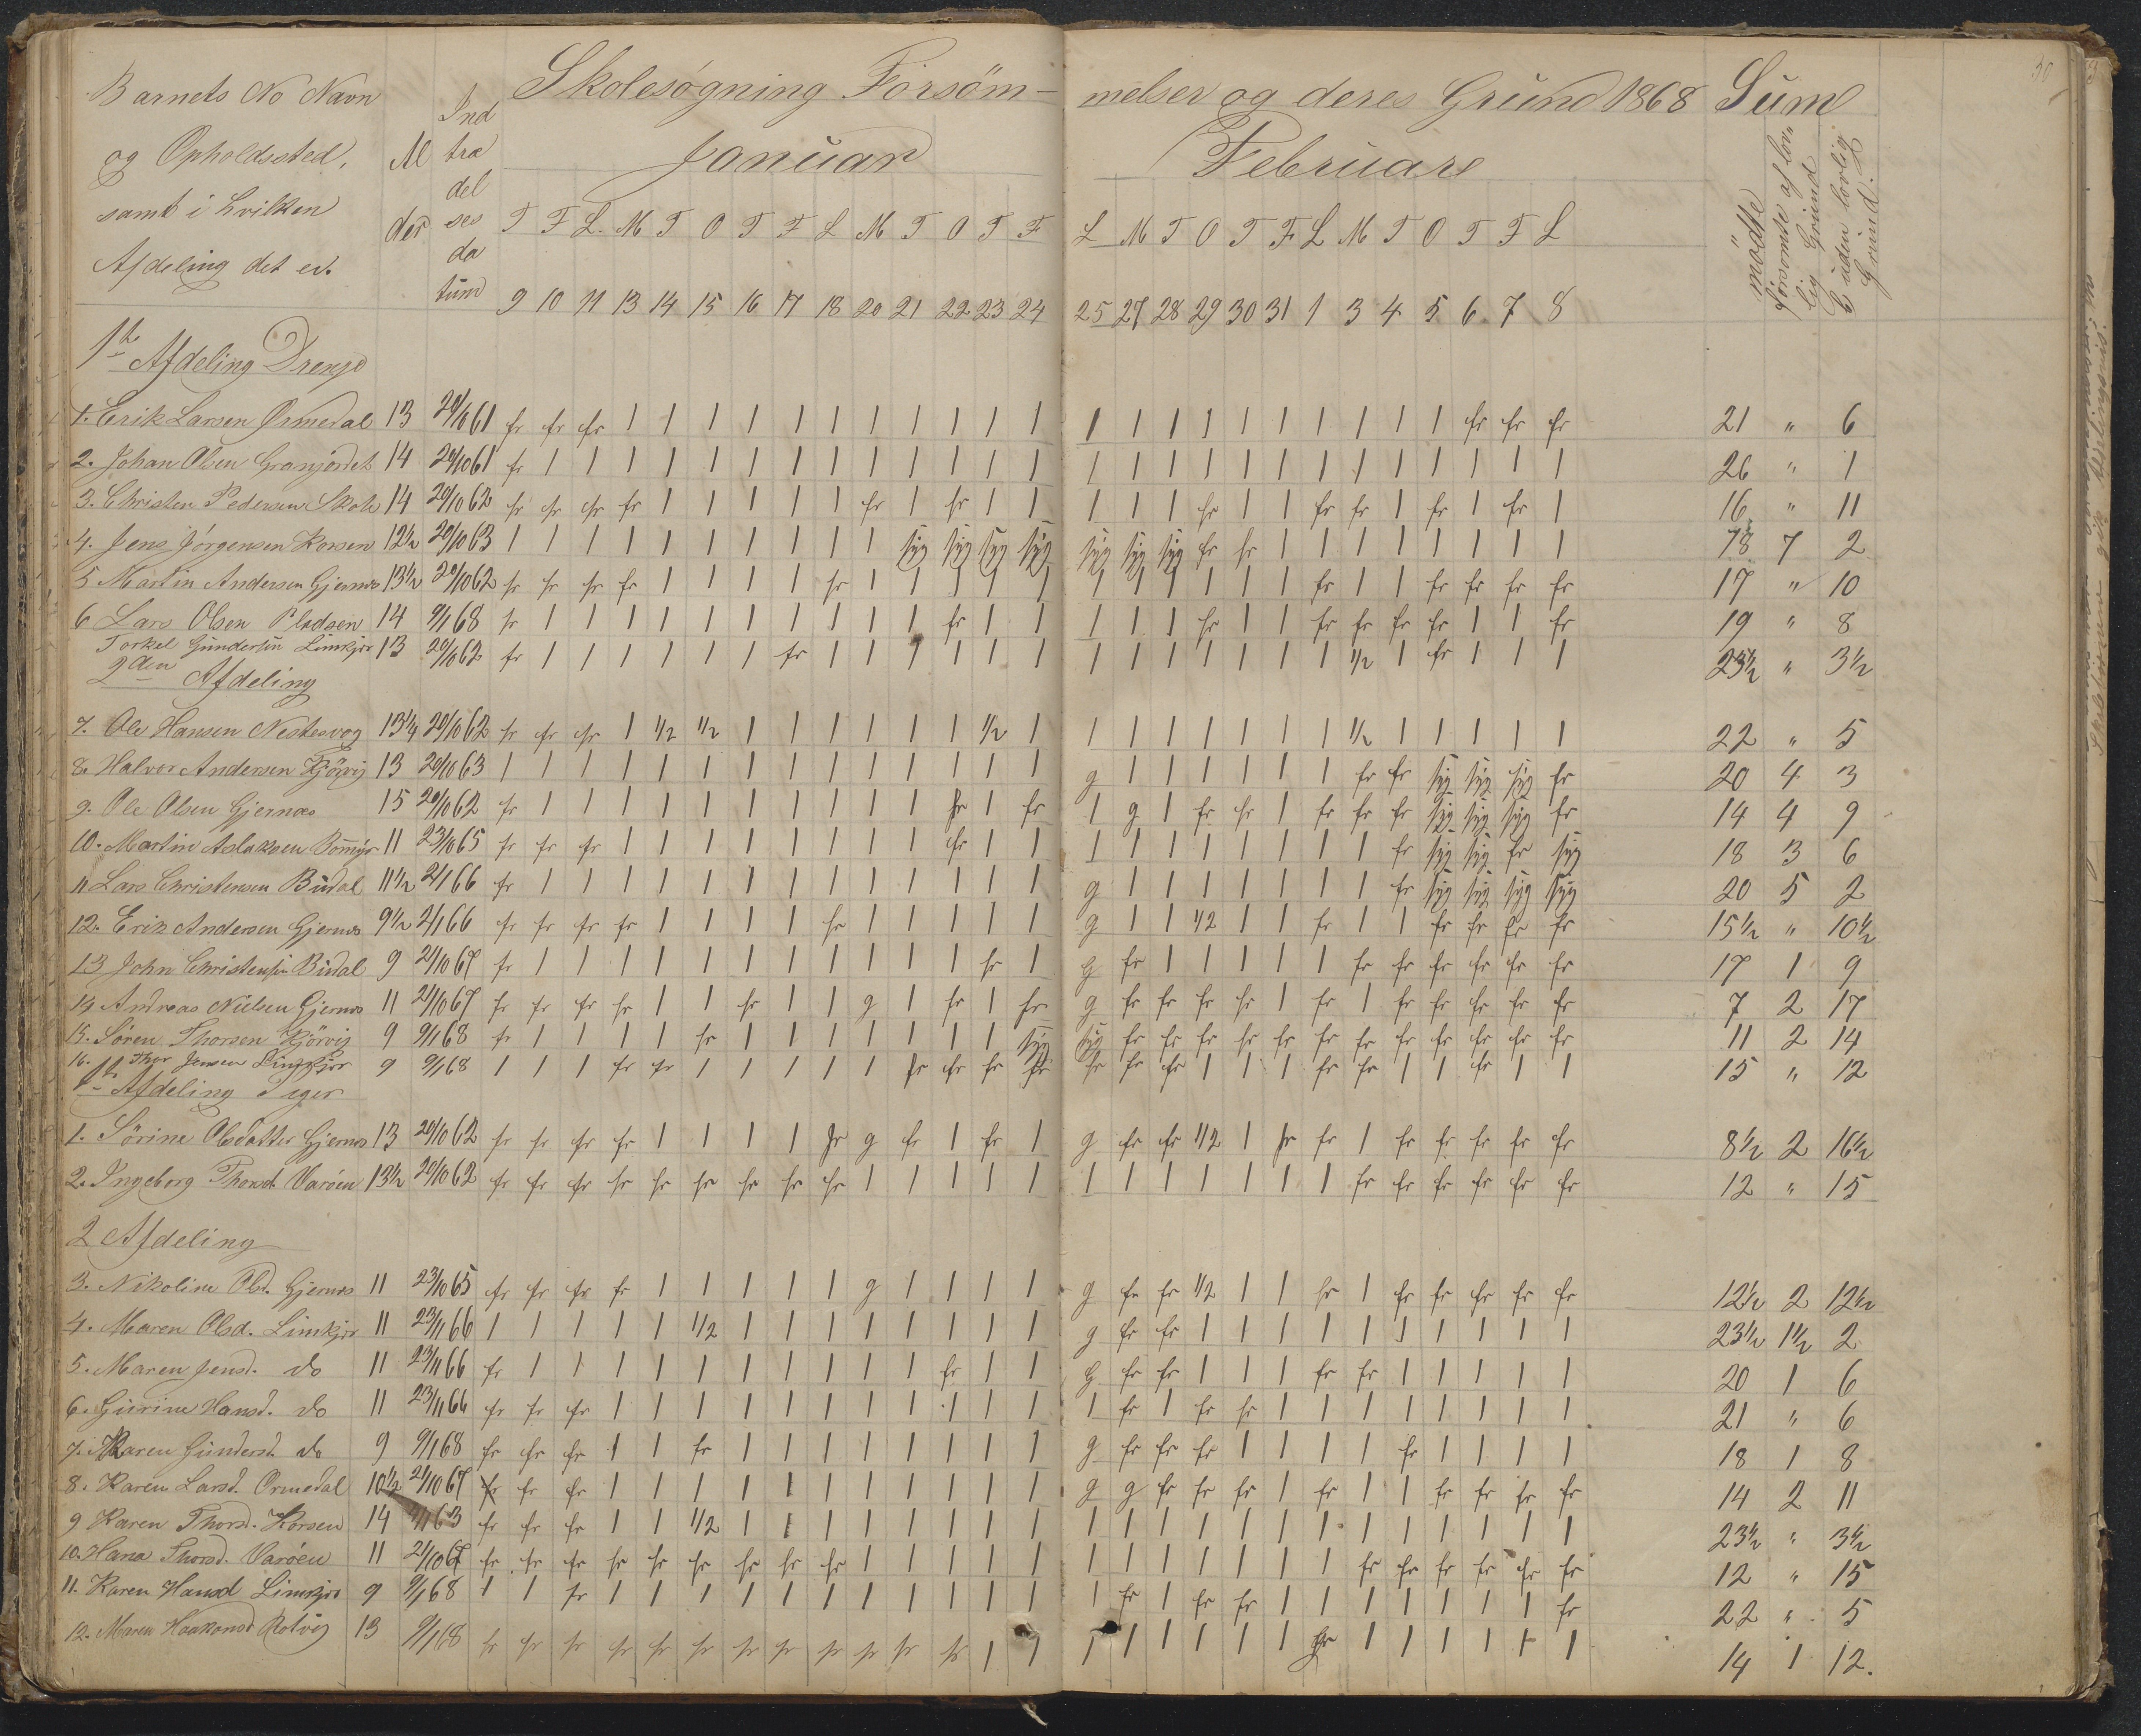 Skolesøgning Forsøm-melser og deres Grund 1868 Sum
Barnets No Navn
og Opholdssted,
samt i hvilken
Afdeling det er.
Al
der
Ind
tra
del
ses
da
tum
Januar
Februare
T F L. M T O T F L M T O T F L M T O T F L M T O T F L
9 10 11 13 14 15 16 17 18 20 21 22 23 24 25 27 28 29 30 31 1 3 4 5 6 7 8
mödte
forsömte af lov-
lig Grund
uden lovlig
Grund.
1te Afdeling Drenge
1. Erik Larsen Ormedal 13 20/10 61 fr fr fr 1 1 1 1 1 1 1 1 1 1 1 1 1 1 1 1 1 1 1 1 1 fr fr fr 21 " 6
2. Johan Olsen Granjordet 14 20/10 61 fr 1 1 1 1 1 1 1 1 1 1 1 1 1 1 1 1 1 1 1 1 1 1 1 1 1 1 26 " 1
3. Christen Pedersen 14 20/10 62 fr fr fr fr 1 1 1 1 1 fr 1 fr 1 1 1 1 1 fr 1 1 fr fr 1 fr 1 fr 1 16 " 11
4. Jens Jörgensen Korsen 12½ 20/10 63 1 1 1 1 1 1 1 1 1 1 syg syg syg syg syg syg syg fr fr 1 1 1 1 1 1 1 1 18 7 2
5 Martin Andersen Gjernes 13½ 20/10 62 fr fr fr fr 1 1 1 1 fr 1 1 1 1 1 1 1 1 1 1 1 fr 1 1 fr fr fr fr 17 " 10
6 Lars Olsen Pladsen 14 9/1 68 fr 1 1 1 1 1 1 1 1 1 1 fr 1 1 1 1 1 fr 1 1 fr fr fr fr 1 1 fr 19 " 8
Torkel Gundersen Limkjer 13 20/10 62 fr 1 1 1 1 1 1 fr 1 1 1 1 1 1 1 1 1 1 1 1 1 1/2 1 fr 1 1 1 23½ " 3½
2den Afdeling
7. Ole Hansen Nestesvog 13¼ 20/10 62 fr fr fr 1 1/2 1/2 1 1 1 1 1 1 1/2 1 1 1 1 1 1 1 1 1/2 1 1 1 1 1 22 " 5
8. Halvor Andersen Kjörvig 13 20/10 63 1 1 1 1 1 1 1 1 1 1 1 1 1 1 g 1 1 1 1 1 1 fr fr syg syg syg fr 20 4 3
9. Ole Olsen Gjernæs 15 20/10 62 fr 1 1 1 1 1 1 1 1 1 1 fr 1 fr 1 g 1 fr fr 1 fr fr fr syg syg syg fr 14 4 9
10. Martin Aslaksen 11 23/10 65 fr fr fr 1 1 1 1 1 1 1 1 fr 1 1 1 1 1 1 1 1 1 1 fr syg syg fr syg 18 3 6
11 Lars Christensen Budal 11½ 2/1 66 fr 1 1 1 1 1 1 1 1 1 1 1 1 1 g 1 1 1 1 1 1 1 fr syg syg syg syg 20 5 2
12. Erik Andersen Gjernes 9½ 2/1 66 fr fr fr fr 1 1 1 1 fr 1 1 1 1 1 g 1 1 1/2 1 1 fr 1 1 fr fr fr fr 15½ " 10½
13 John Christensen Budal 9 21/10 67 fr 1 1 1 1 1 1 1 1 1 1 1 fr 1 g fr 1 1 1 1 1 fr fr fr fr fr fr 17 1 9
14 Andreas Nielsen Gjernes 11 21/10 67 fr fr fr fr 1 1 fr 1 1 g 1 fr 1 fr g fr fr fr fr 1 fr 1 fr fr fr fr fr 7 2 17
15. Søren Thorsen Kjörvig 9 9/1 68 fr 1 1 1 1 fr 1 1 1 1 1 1 1 syg syg fr fr fr fr fr fr fr fr fr fr fr fr 11 2 14
16. Thor Jensen Limkjer 9 9/1 68 1 1 1 fr fr 1 1 1 1 1 fr fr fr fr fr fr fr 1 1 1 fr fr 1 1 fr 1 1 15 " 12
1te Afdeling Piger
1. Sörine Olsdatter Gjernes 13 20/10 62 fr fr fr fr 1 1 1 1 fr g fr 1 fr 1 g fr fr 1/2 1 fr fr 1 fr fr fr fr fr 8½ 2 16½
2. Ingeborg Thorsd. Varöen 13½ 20/10 62 fr fr fr fr fr fr fr fr fr 1 1 1 1 1 1 1 1 1 1 1 1 fr fr fr fr fr fr 12 " 15
2 Afdeling
3. Nikoline Olsd. Gjernes 11 23/10 65 fr fr fr fr 1 1 1 1 1 g 1 1 1 1 g fr fr 1/2 1 1 fr 1 fr fr fr fr fr 12½ 2 12½
4. Maren Olsd. Limkjer 11 23/11 66 1 1 1 1 1 1/2 1 1 1 1 1 1 1 1 g fr fr 1 1 1 1 1 1 1 1 1 1 23½ 1½ 2
5. Maren Jensd. do 11 23/11 66 fr 1 1 1 1 1 1 1 1 1 1 fr 1 1 g fr fr 1 1 1 fr fr 1 1 1 1 1 20 1 6
6. Gurine Hansd. do 11 23/11 66 fr fr fr 1 1 1 1 1 1 1 1 1 1 1 1 fr 1 fr fr 1 1 1 1 1 1 1 1 21 " 6
7. Karen Gundersd. do 9 9/1 68 fr fr fr 1 1 fr 1 1 1 1 1 1 1 1 g fr fr fr 1 1 1 1 fr 1 1 1 1 18 1 8
8. Karen Larsd. Ormedal 10½ 21/10 67 fr fr fr 1 1 1 1 1 1 1 1 1 1 1 g g fr fr fr 1 fr 1 1 fr fr fr fr 14 2 11
9 Karen Thorsd. Korsen 14 63 fr fr fr 1 1 1/2 1 1 1 1 1 1 1 1 1 1 1 1 1 1 1 1 1 1 1 1 1 23½ " 3½
10. Hana Thorsd. Varöen 11 21/10 67 fr fr fr fr fr fr fr fr fr 1 1 1 1 1 1 1 1 1 1 1 1 fr fr fr fr fr fr 12 " 15
11. Karen Hansd Limkjer 9 9/1 68 1 1 fr 1 1 1 1 1 1 1 1 1 1 1 1 fr 1 fr fr 1 1 1 1 1 1 1 fr 22 " 5
12. Maren Haakonsd Rotvig 13 9/1 68 fr fr fr fr fr fr fr fr fr fr fr fr 1 1 1 1 1 1 1 1 fr 1 1 1 1 1 1 14 1 12.